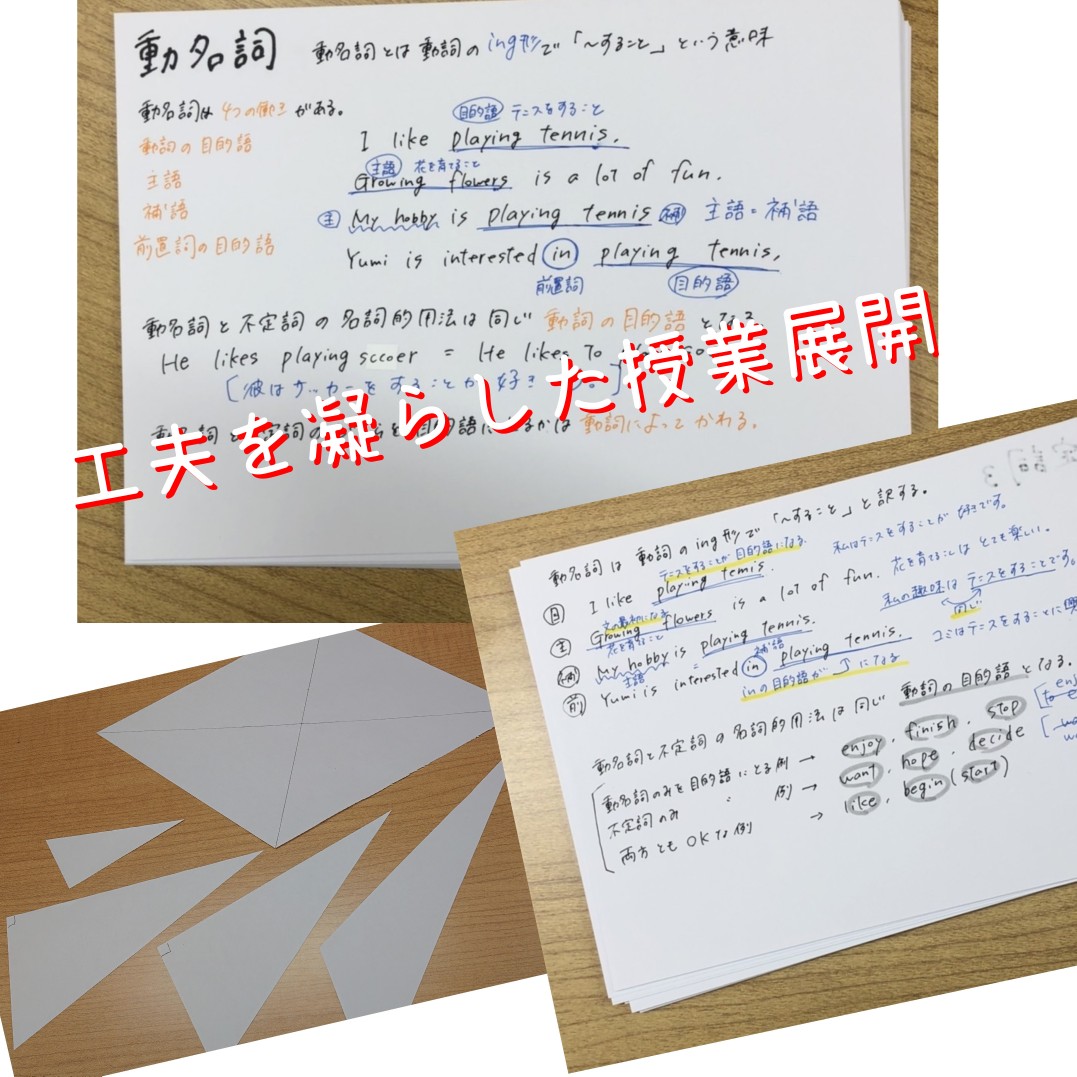 動名詞 動名詞とは動詞のing形で「～すること」という意味
動名詞は4つの働きがある。
動詞の目的語
主語
補語
前置詞の目的語
目的語 テニスをすること
I like playing tennis.
主語 花を育てること
Growing flowers is a lot of fun.
主 My hobby is playing tennis 補 主語=補語
Yumi is interested in playing tennis.
前置詞 目的語
動名詞と不定詞の名詞的用法は同じ 動詞の目的語となる。
He likes playing sccoer = He likes to
[彼はサッカーをすることが好き
動名詞と
動詞によってかわる。
工夫を凝らした授業展開
動名詞は 動詞のing形で「～すること」と訳する。
テニスをすることが目的語になる
目 I like playing tennis. 私はテニスをすることが好きです。
花を育てること
主 Growing flowers is a lot of fun. 花を育てることはとても楽しい。
補 My hobby is playing tennis. 私の趣味はテニスをすることです。
主語 補語 同じ
前 Yumi is interested in playing tennis. ユミはテニスをすることに
inの目的語が ↑になる
動名詞と不定詞の名詞的用法は同じ 動詞の目的語となる。
動名詞のみを目的語にとる例 → enjoy, finish, stop
不定詞のみ 〃 例 → want, hope, decide
両方ともOKな例 → like, begin (start)